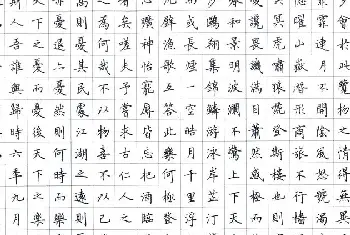 會於此覽物之情得無異
霏連月不開陰風怒號濁
曜山岳潛形商旅不行檣
冥冥虎嘯猿啼登斯樓也則
憂讒畏譏滿目蕭然感極而
和景明波瀾不驚上下天
鷗翔集錦鱗游泳岸芷汀
或長煙一空皓月千里浮
漁歌互答此樂何極登
神怡寵辱皆忘把酒臨
矣嗟夫予嘗求古仁人之
為何哉不以物喜不以己
則憂其民處江湖之遠則
憂退亦憂然則何時而樂
之憂而憂後天下之樂
人吾誰與歸時六年九月